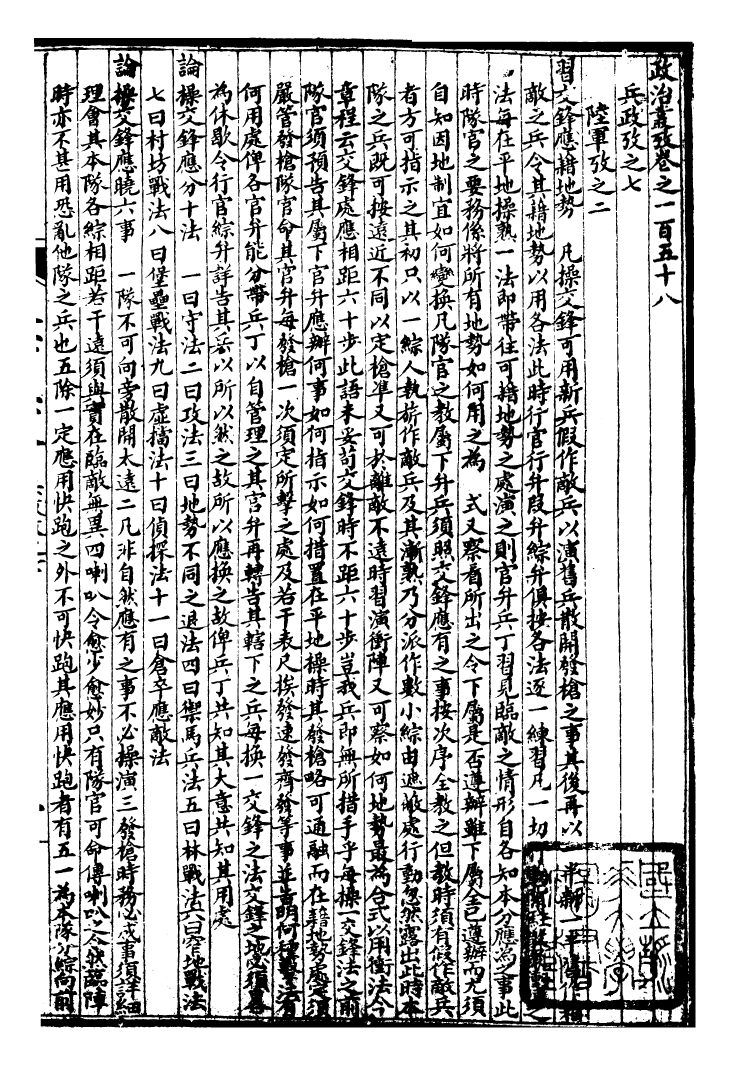 政治叢攷卷之一百五十八
兵政攷之七
陸軍攷之二
習交鋒應藉地勢　凡操交鋒可用新兵假作敵兵以演舊兵散開發槍之事其後再以
敵之兵令其藉地勢以用各法此時行官行弁段弁綜弁俱按各法逐一練習凡一切
法每在平地操熟一法即帶往可藉地勢之處演之則官弁兵丁習見臨敵之情形自各知本分應為之事此
時隊官之要務係將所有地勢如何用之為　式又察看所出之令下屬是否遵辦雖下屬全已遵辦而尤須
自知因地制宜如何變換凡隊官之教屬下弁兵須照交鋒應有之事按次序全教之但教時須有假作敵兵
者方可指示之其初只以一綜人執旂作敵兵及其漸熟乃分派作數小綜由遮蔽處行動忽然露出此時本
隊之兵既可按遠近不同以定槍準又可於離敵不遠時習演衝陣又可察如何地勢最為合式以用衝法今
章程云交鋒處應相距六十步此語未妥苟交鋒時不距六十步豈我兵即無所措手乎每操一交鋒法之前
隊官須預告其屬下官弁應辦何事如何指示如何措置在平地操時其發槍略可通融而在藉地勢處必須
嚴管發槍隊官命其官弁每發槍一次須定所擊之處及若干表尺挨發速發齊發等事並告明何種擊法有
何用處俾各官弁能分帶兵丁以自管理之其官弁再轉告其轄下之兵每換一交鋒之法交鋒之地必須畧
為休歇令行官綜弁詳告其兵以所以然之故所以應換之故俾兵丁共知其大意共知其用處
論操交鋒應分十法　一曰守法二曰攻法三曰地勢不同之退法四曰禦馬兵法五曰林戰法六曰窄地戰法
七曰村坊戰法八曰堡壘戰法九曰虛擋法十曰偵探法十一曰倉卒應敵法
論操交鋒應曉六事　一隊不可向旁散開太遠二凡非自然應有之事不必操演三發槍時務必或事須詳細
理會其本隊各綜相距若干遠須與實在臨敵無異四喇叭令愈少愈妙只有隊官可命傳喇叭之令然臨陣
時亦不甚用恐亂他隊之兵也五除一定應用快跑之外不可快跑其應用快跑者有五一為本隊分綜向前